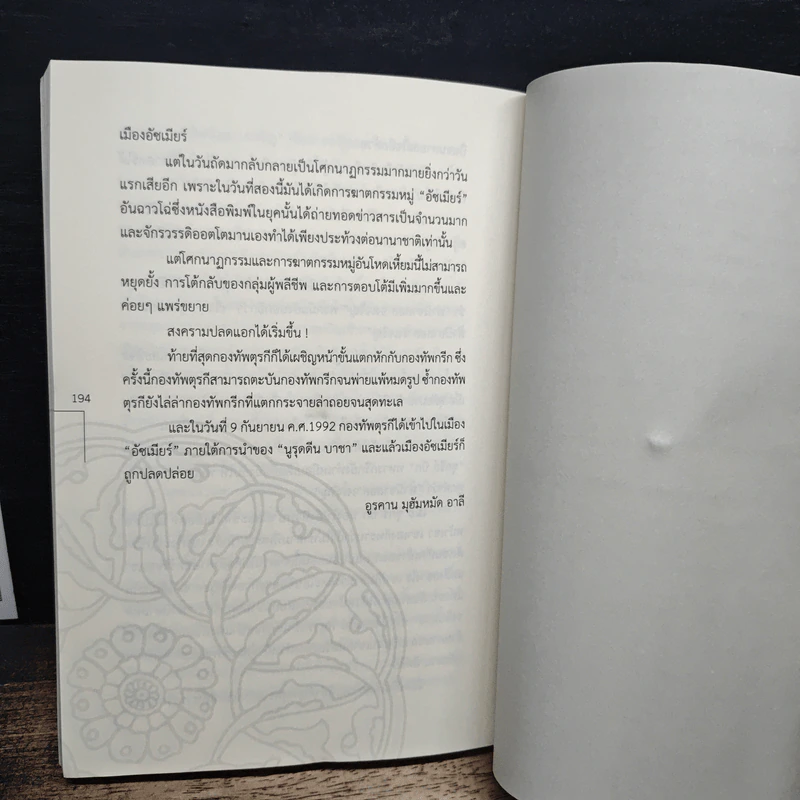 เมืองอัซเมียร์
แต่ในวันถัดมากลับกลายเป็นโศกนาฏกรรมมากมายยิ่งกว่าวัน
แรกเสียอีก เพราะในวันที่สองนี้มันได้เกิดการฆาตกรรมหมู่ “อัซเมียร์”
อันฉาวโฉ่ซึ่งหนังสือพิมพ์ในยุคนั้นได้ถ่ายทอดข่าวสารเป็นจำนวนมาก
และจักรวรรดิออตโตมานเองทำได้เพียงประท้วงต่อนานาชาติเท่านั้น
แต่โศกนาฏกรรมและการฆาตกรรมหมู่อันโหดเหี้ยมนี้ไม่สามารถ
หยุดยั้ง การโต้กลับของกลุ่มผู้พลีชีพ และการตอบโต้มีเพิ่มมากขึ้นและ
ค่อยๆ แพร่ขยาย
สงครามปลดแอกได้เริ่มขึ้น !
ท้ายที่สุดกองทัพตุรกีก็ได้เผชิญหน้าขั้นแตกหักกับกองทัพกรีก ซึ่ง
ครั้งนี้กองทัพตุรกีสามารถตะบันกองทัพกรีกจนพ่ายแพ้หมดรูป ซ้ำกองทัพ
ตุรกียังไล่ล่ากองทัพกรีกที่แตกกระจายล่าถอยจนสุดทะเล
194
และในวันที่ 9 กันยายน ค.ศ.1992 กองทัพตุรกีได้เข้าไปในเมือง
“อัซเมียร์” ภายใต้การนำของ “นูรุดดีน บาชา” และแล้วเมืองอัซเมียร์ก็
ถูกปลดปล่อย
อูรคาน มุฮัมหมัด อาลี